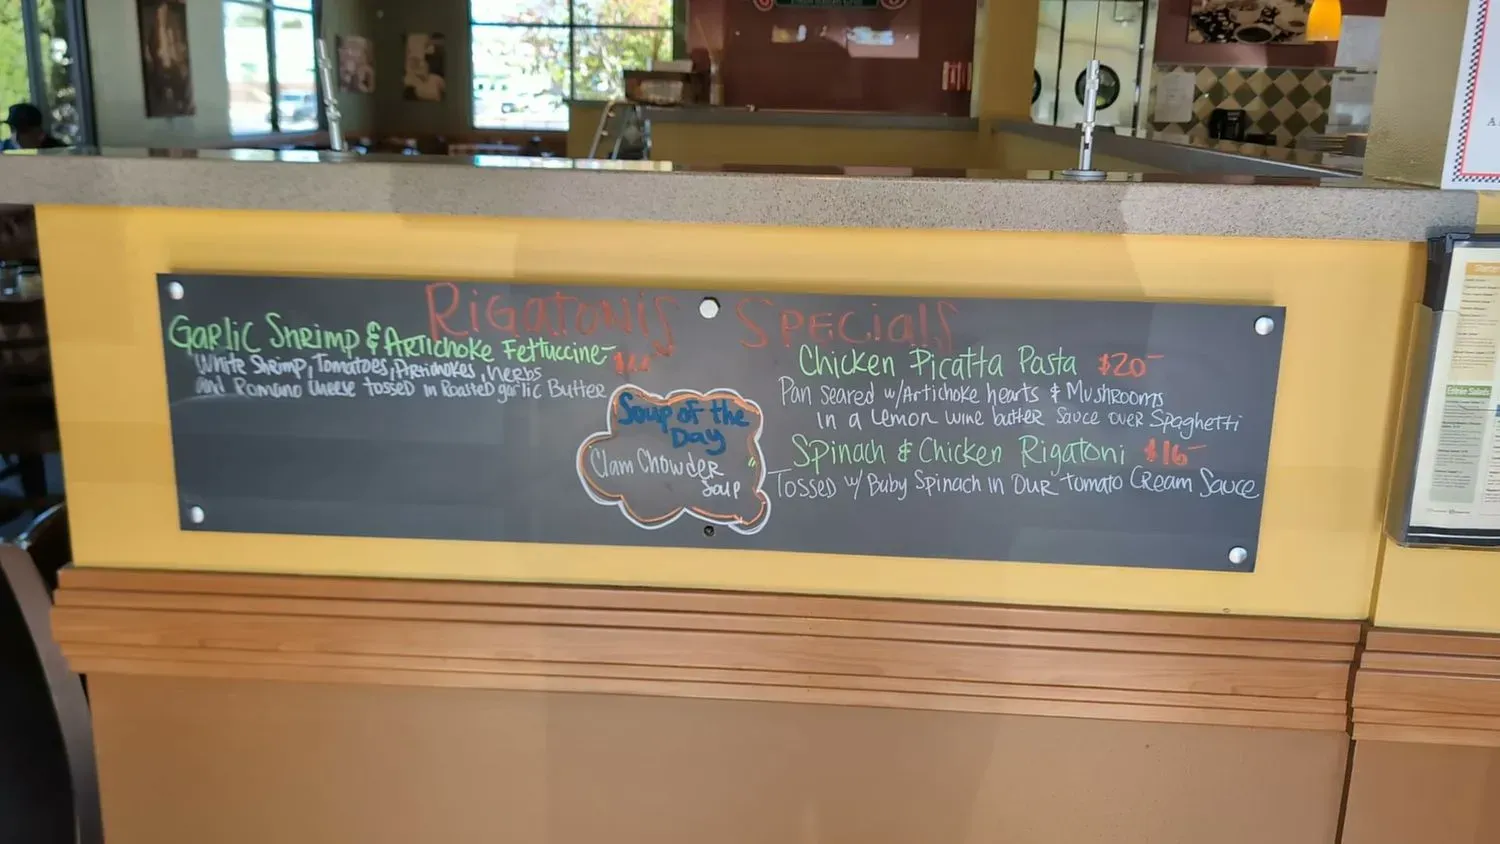 Rigatonis Specials
Garlic Shrimp & Artichoke Fettuccine
White Shrimp, Tomatoes, Artichokes, Herbs
and Romano Cheese tossed in Roasted garlic Butter
Soup of the
Day
Clam Chowder
Soup
Chicken Picatta Pasta $20
Pan seared w/Artichoke hearts & Mushrooms
in a Lemon wine butter sauce over Spaghetti
Spinach & Chicken Rigatoni $16
Tossed w/ Baby Spinach in our tomato Cream Sauce